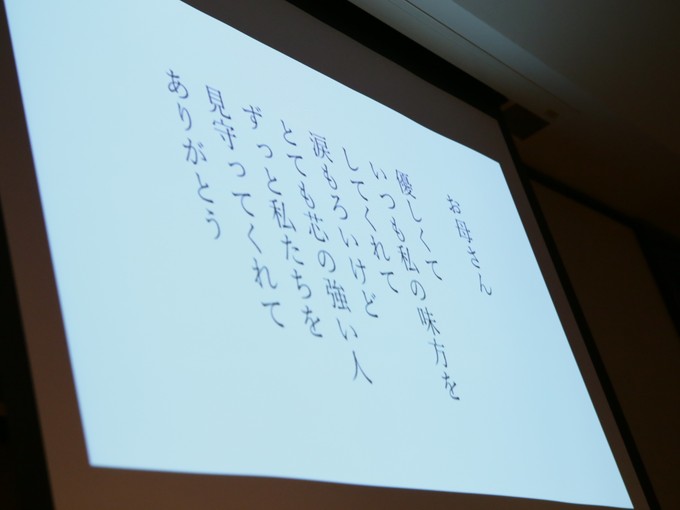 お母さん
優しくて
いつも私の味方を
してくれて
涙もろいけど
とても芯の強い人
ずっと私たちを
見守ってくれて
ありがとう